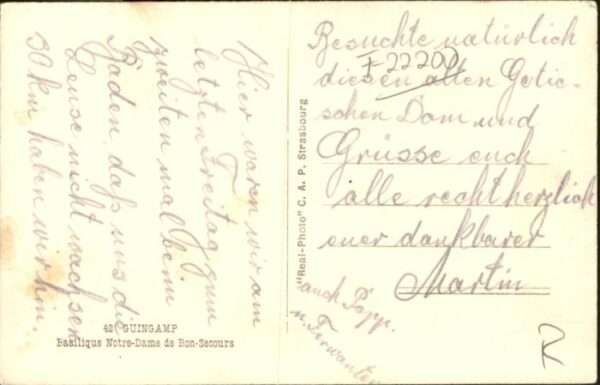 Hier waren wir am
letzten Freitag zum
zweiten mal beim
Baden, daß uns die
Leuse nicht wachsen
30 km haben wir hin.
42 GUINGAMP
Basilique Notre-Dame de Bon-Secours
"Real-Photo" C. A. P. Strasbourg
Besuchte natürlich
diesen alten Gotie-
schen Dom und
Grüsse euch
alle recht herzlich
euer dankbarer
Martin
auch Papp.
u. Verwanten